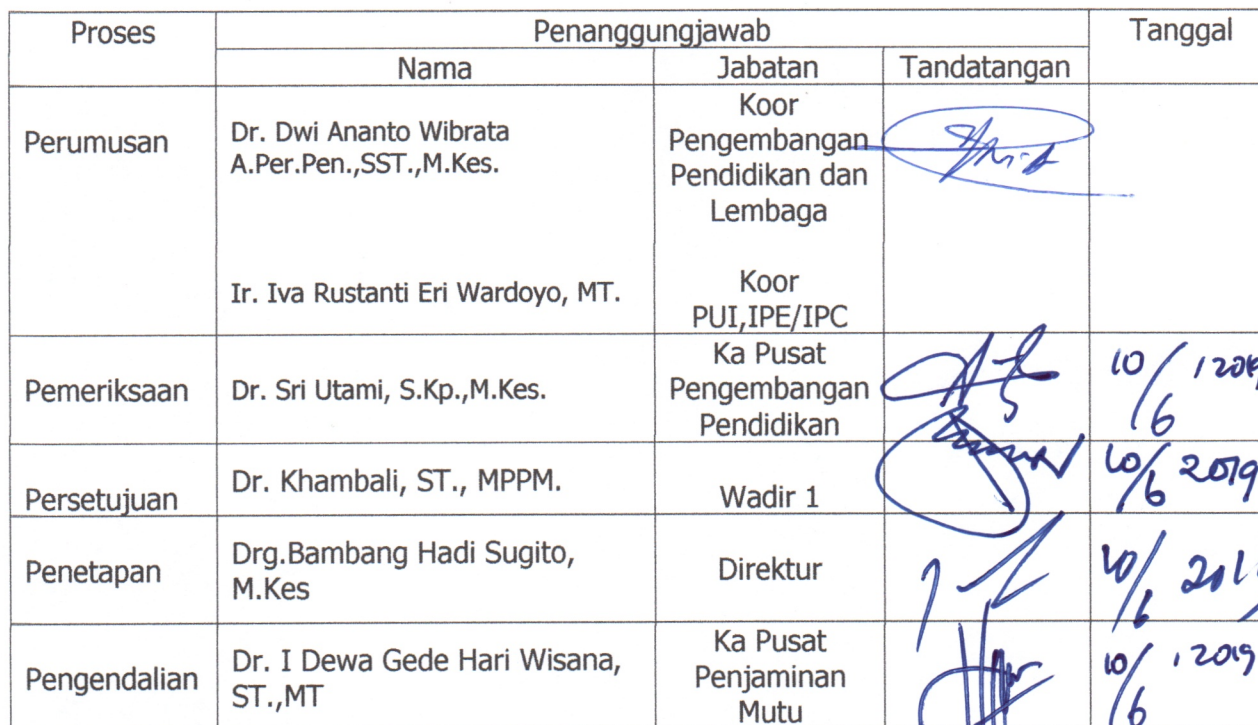 Proses
Penanggungjawab
Tanggal
Nama
Jabatan
Tandatangan
Perumusan
Dr. Dwi Ananto Wibrata
A.Per.Pen.,SST.,M.Kes.
Koor
Pengembangan
Pendidikan dan
Lembaga
Ir. Iva Rustanti Eri Wardoyo, MT.
Koor
PUI,IPE/IPC
Pemeriksaan
Dr. Sri Utami, S.Kp.,M.Kes.
Ka Pusat
Pengembangan
Pendidikan
10/6
Persetujuan
Dr. Khambali, ST., MPPM.
Wadir 1
10/6 2019
Penetapan
Drg.Bambang Hadi Sugito,
M.Kes
Direktur
10/6
Pengendalian
Dr. I Dewa Gede Hari Wisana,
ST.,MT
Ka Pusat
Penjaminan
Mutu
10/6 2019